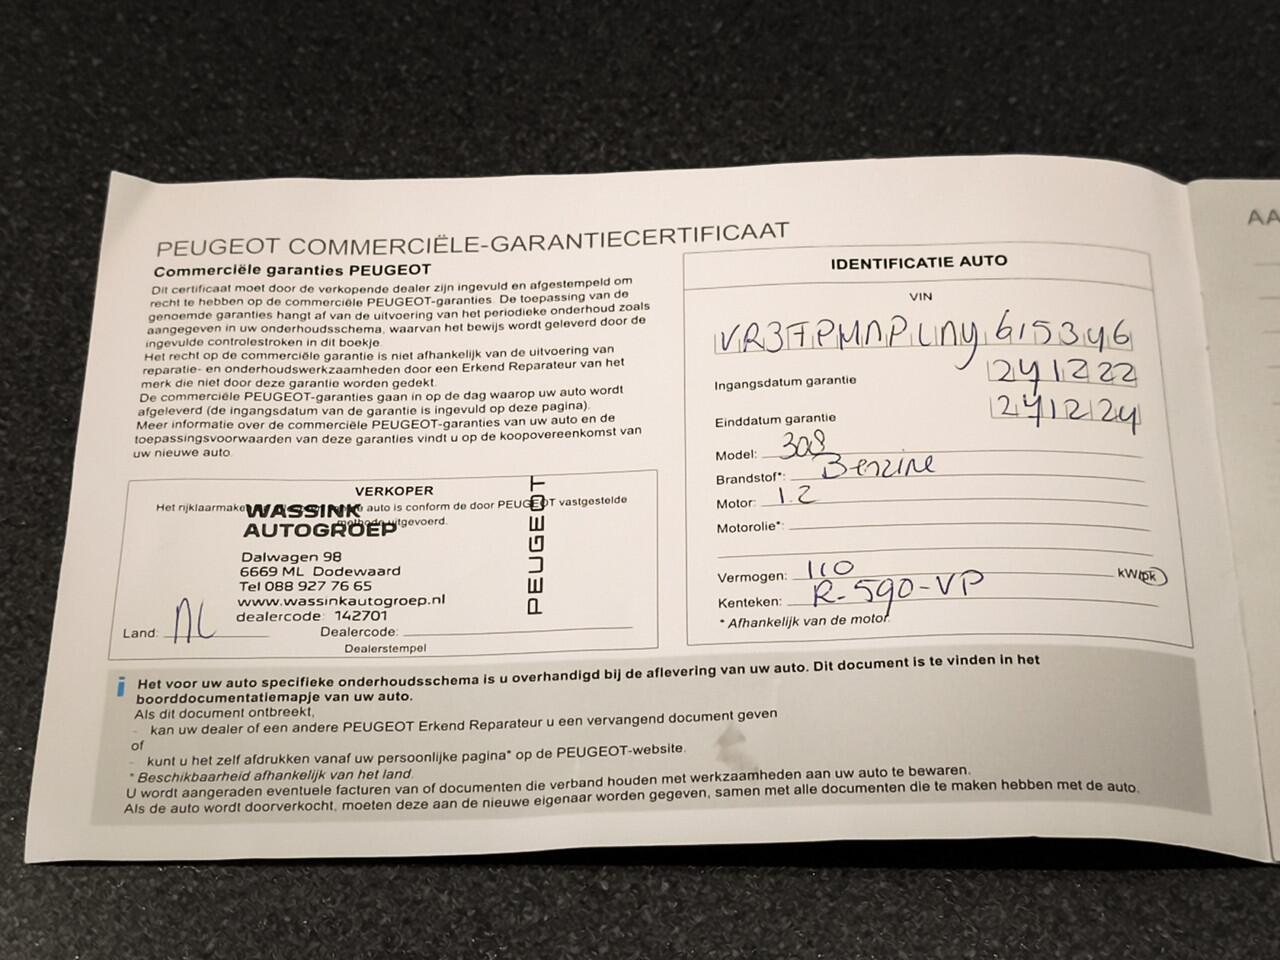 PEUGEOT COMMERCIËLE-GARANTIECERTIFICAAT
Commerciële garanties PEUGEOT
Dit certificaat moet door de verkopende dealer zijn ingevuld en afgestempeld om
recht te hebben op de commerciële PEUGEOT-garanties. De toepassing van de
genoemde garanties hangt af van de uitvoering van het periodieke onderhoud zoals
aangegeven in uw onderhoudsschema, waarvan het bewijs wordt geleverd door de
ingevulde controlestroken in dit boekje.
Het recht op de commerciële garantie is niet afhankelijk van de uitvoering van
reparatie- en onderhoudswerkzaamheden door een Erkend Reparateur van het
merk die niet door deze garantie worden gedekt.
De commerciële PEUGEOT-garanties gaan in op de dag waarop uw auto wordt
afgeleverd (de ingangsdatum van de garantie is ingevuld op deze pagina).
Meer informatie over de commerciële PEUGEOT-garanties van uw auto en de
toepassingsvoorwaarden van deze garanties vindt u op de koopovereenkomst van
uw nieuwe auto.
VERKOPER
Het rijklaarmaken auto is conform de door PEUGEOT vastgestelde
methode uitgevoerd.
WASSINK
AUTOGROEP
Dalwagen 98
6669 ML Dodewaard
Tel 088 927 76 65
www.wassinkautogroep.nl
dealercode: 142701
PEUGEOT
Land: NL
Dealercode:
Dealerstempel
IDENTIFICATIE AUTO
VIN
VR3FPHNPLNY615346
Ingangsdatum garantie 241222
Einddatum garantie 241224
Model: 308
Brandstof*: Benzine
Motor: 1.2
Motorolie*:
Vermogen: 110 kW/pk
Kenteken: R-590-VP
* Afhankelijk van de motor.
i Het voor uw auto specifieke onderhoudsschema is u overhandigd bij de aflevering van uw auto. Dit document is te vinden in het
boorddocumentatiemapje van uw auto.
Als dit document ontbreekt,
- kan uw dealer of een andere PEUGEOT Erkend Reparateur u een vervangend document geven
of
- kunt u het zelf afdrukken vanaf uw persoonlijke pagina* op de PEUGEOT-website.
* Beschikbaarheid afhankelijk van het land.
U wordt aangeraden eventuele facturen van of documenten die verband houden met werkzaamheden aan uw auto te bewaren.
Als de auto wordt doorverkocht, moeten deze aan de nieuwe eigenaar worden gegeven, samen met alle documenten die te maken hebben met de auto.
AA